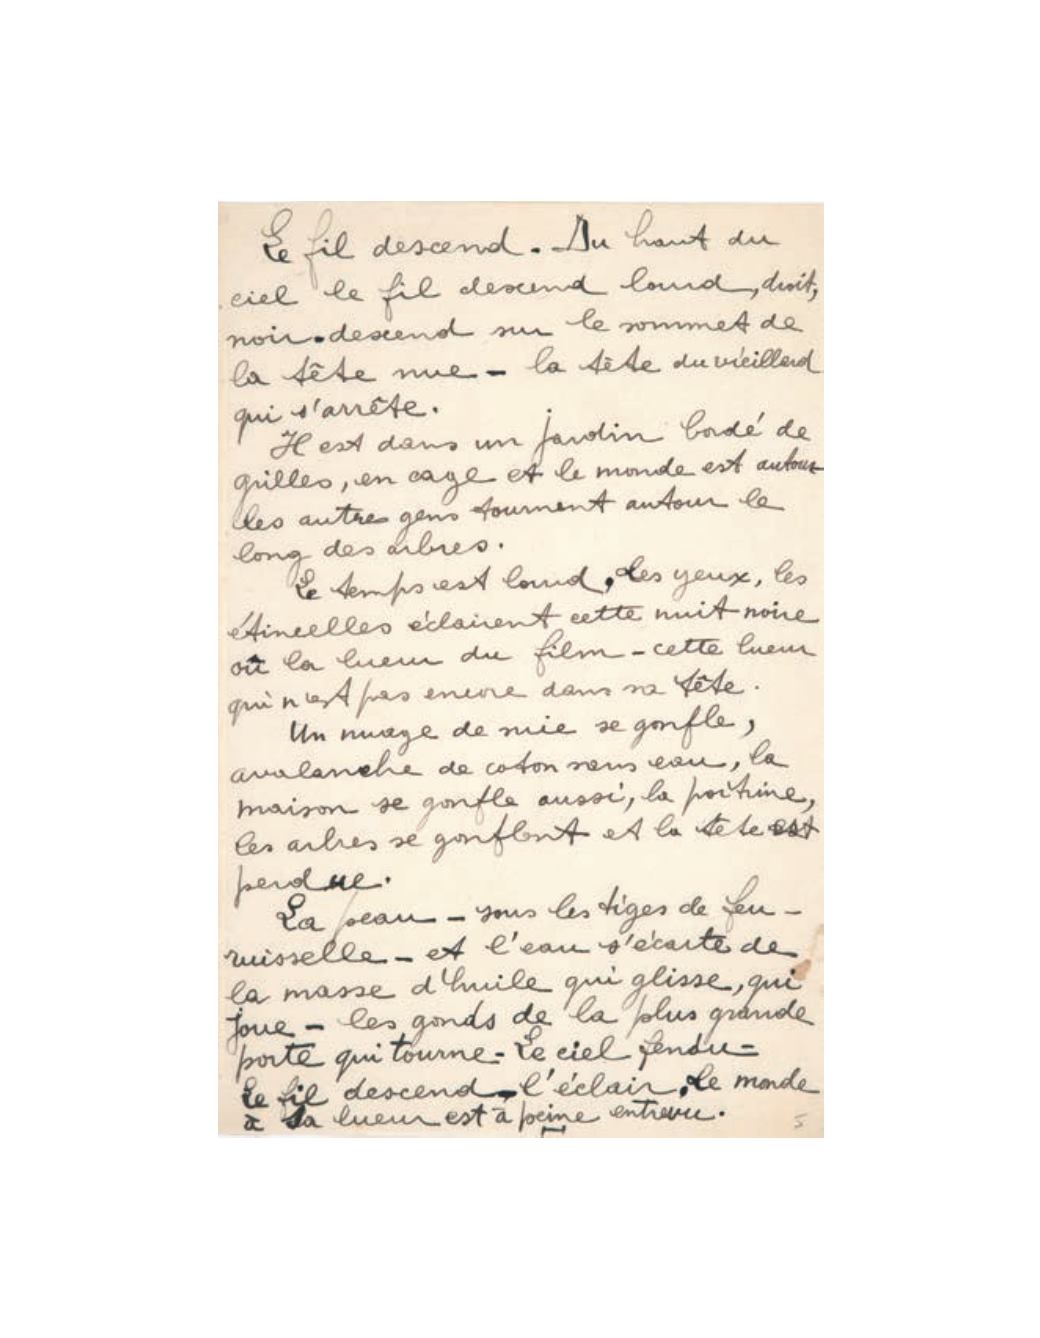 Le fil descend. Du haut du
ciel le fil descend lourd, droit,
noir. descend sur le sommet de
la tête nue - la tête du vieillard
qui s'arrête.
Il est dans un jardin bordé de
grilles, en cage et le monde est autour
les autres gens tournent autour le
long des arbres.
Le temps est lourd, les yeux, les
étincelles éclairent cette nuit noire
où la lueur du film - cette lueur
qui n'est pas encore dans sa tête.
Un nuage de suie se gonfle,
avalanche de coton sans eau, la
maison se gonfle aussi, la poitrine,
les arbres se gonflent et la tete est
perdue.
La peau - sous les tiges de feu -
ruisselle - et l'eau s'écarte de
la masse d'huile qui glisse, qui
joue - les gonds de la plus grande
porte qui tourne - Le ciel fendu -
Le fil descend - l'éclair, le monde
à sa lueur est à peine entrevu.
5